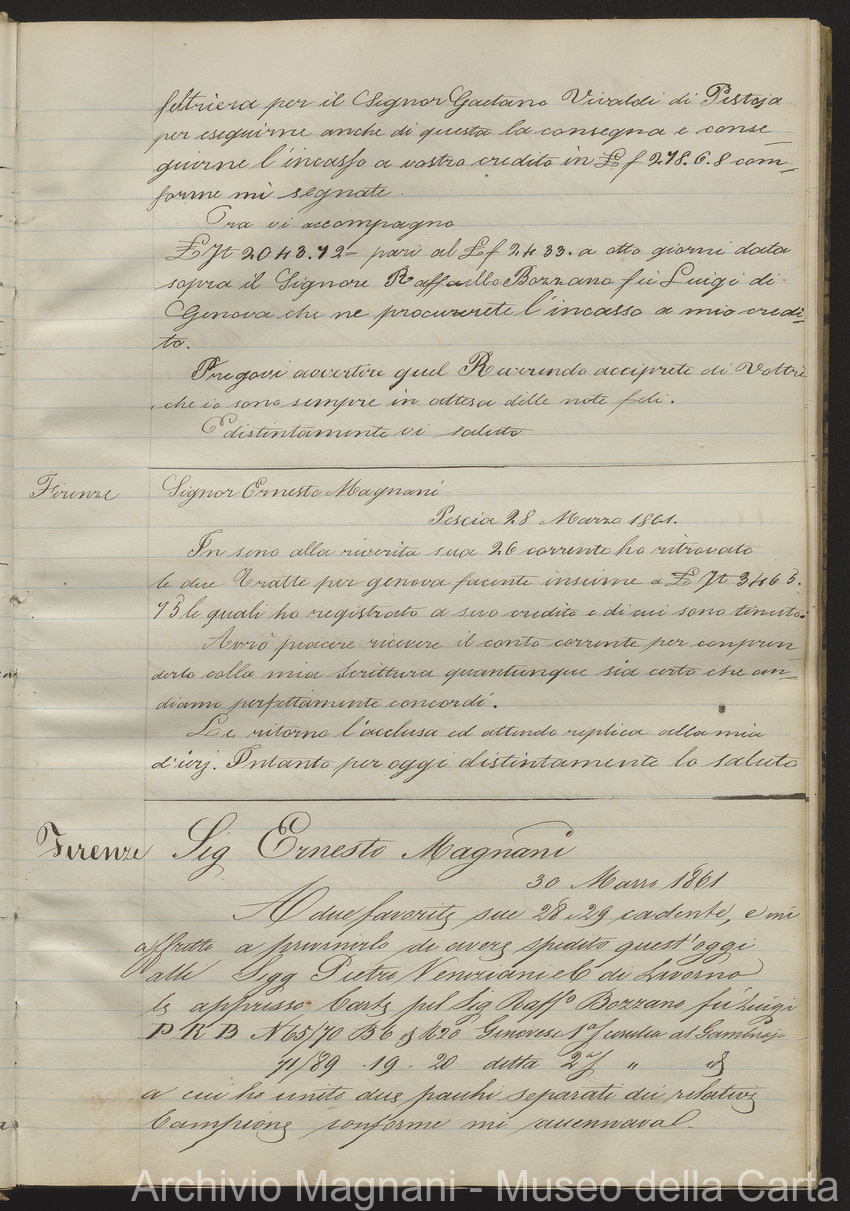 feltriera per il Signor Gaetano Vivaldi di Pistoja
per eseguirne anche di questa la consegna e conse=
guirne l'incasso a vostro credito in £ f 278.6.8 con=
forme mi segnate.
Ora vi accompagno
£ Jt 2043.72 pari al £f 2433. a otto giorni data
sopra il Signore Raffaello Bozzano fu Luigi di
Genova che ne procurerete l'incasso a mio credi=
to.
Pregovi avvertire quel Reverendo arciprete di Voltri
che io sono sempre in attesa delle note fedi.
E distintamente vi saluto
Firenze Signor Ernesto Magnani
Pescia 28 Marzo 1861.
In seno alla riverita sua 26 corrente ho ritrovato
le due tratte per genova facente insieme a £ Jt 3465.
75 le quali ho registrato a suo credito e di cui sono tenuto.
Avrò piacere ricevere il conto corrente per confron=
darlo colla mia Scrittura quantunque sia certo che an=
diamo perfettamente concordi.
Le ritorno l'acclusa ed attendo replica alla mia
d'ierj. Intanto per oggi distintamente lo saluto
Firenze Sig Ernesto Magnani
30 Marzo 1861
A due favorite sue 28 e 29 cadente, e mi
affretto a prevenirlo di avere spedito quest'oggi
alli Sigg Pietro Veneziani e C di Livorno
le appresso Carte pel Sig Raffo Bozzano fu Luigi
P R B N 65/70 B 6 20 Genovese 1a al
71/89 19. 20 detta 2a " "
a cui ho unito due pacchi separati dei relativi
Campioni conforme mi accennava.
Archivio Magnani - Museo della Carta